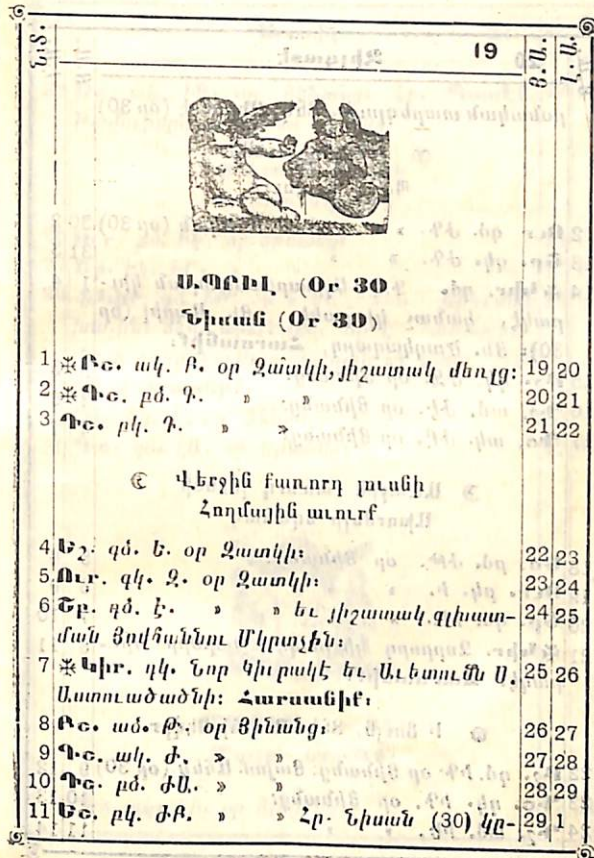 Ն.Տ. 19 Յ.Ա. Լ.Ա.
ԱՊՐԻԼ (Օր 30
Նիսան (Օր 30)
1 ※ Բշ. ակ. Բ. օր Զատկի, յիշատակ մեռլց: 19 20
2 ※ Գշ. բձ. Գ. » » 20 21
3 Դշ. բկ. Դ. » » 21 22
☾ Վերջին քառորդ լուսնի
Հողմային աւուրք
4 Եշ. գձ. Ե. օր Զատկի: 22 23
5 Ուր. գկ. Զ. օր Զատկի: 23 24
6 Շբ. դձ. Է. » » եւ յիշատակ գլխատ- 24 25
ման Յովհաննու Մկրտչին:
7 ※ Կիր. դկ. Նոր Կիւրակէ եւ Աւետումն Ս. 25 26
Աստուածածնի: Հարսանիք:
8 Բշ. աձ. Թ. օր Յինանց: 26 27
9 Գշ. ակ. Ժ. » » 27 28
10 Դշ. բձ. ԺԱ. » » 28 29
11 Եշ. բկ. ԺԲ. » » Հր. Նիսան (30) կը- 29 1